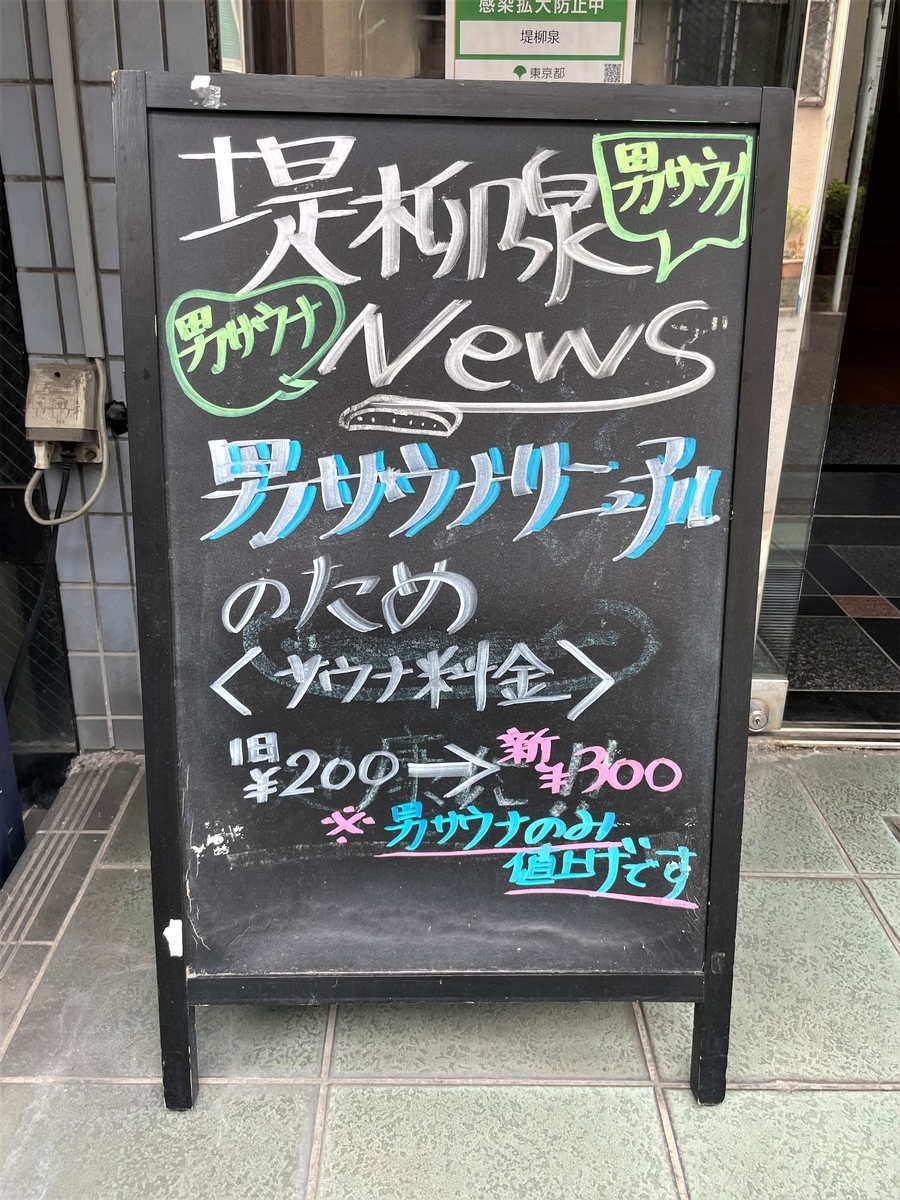 感染拡大防止中
堤柳泉
東京都
堤柳泉
男サウナ
男サウナ
News
男サウナリニューアル
のため
〈サウナ料金〉
旧¥200→新¥300
※男サウナのみ
値上げです